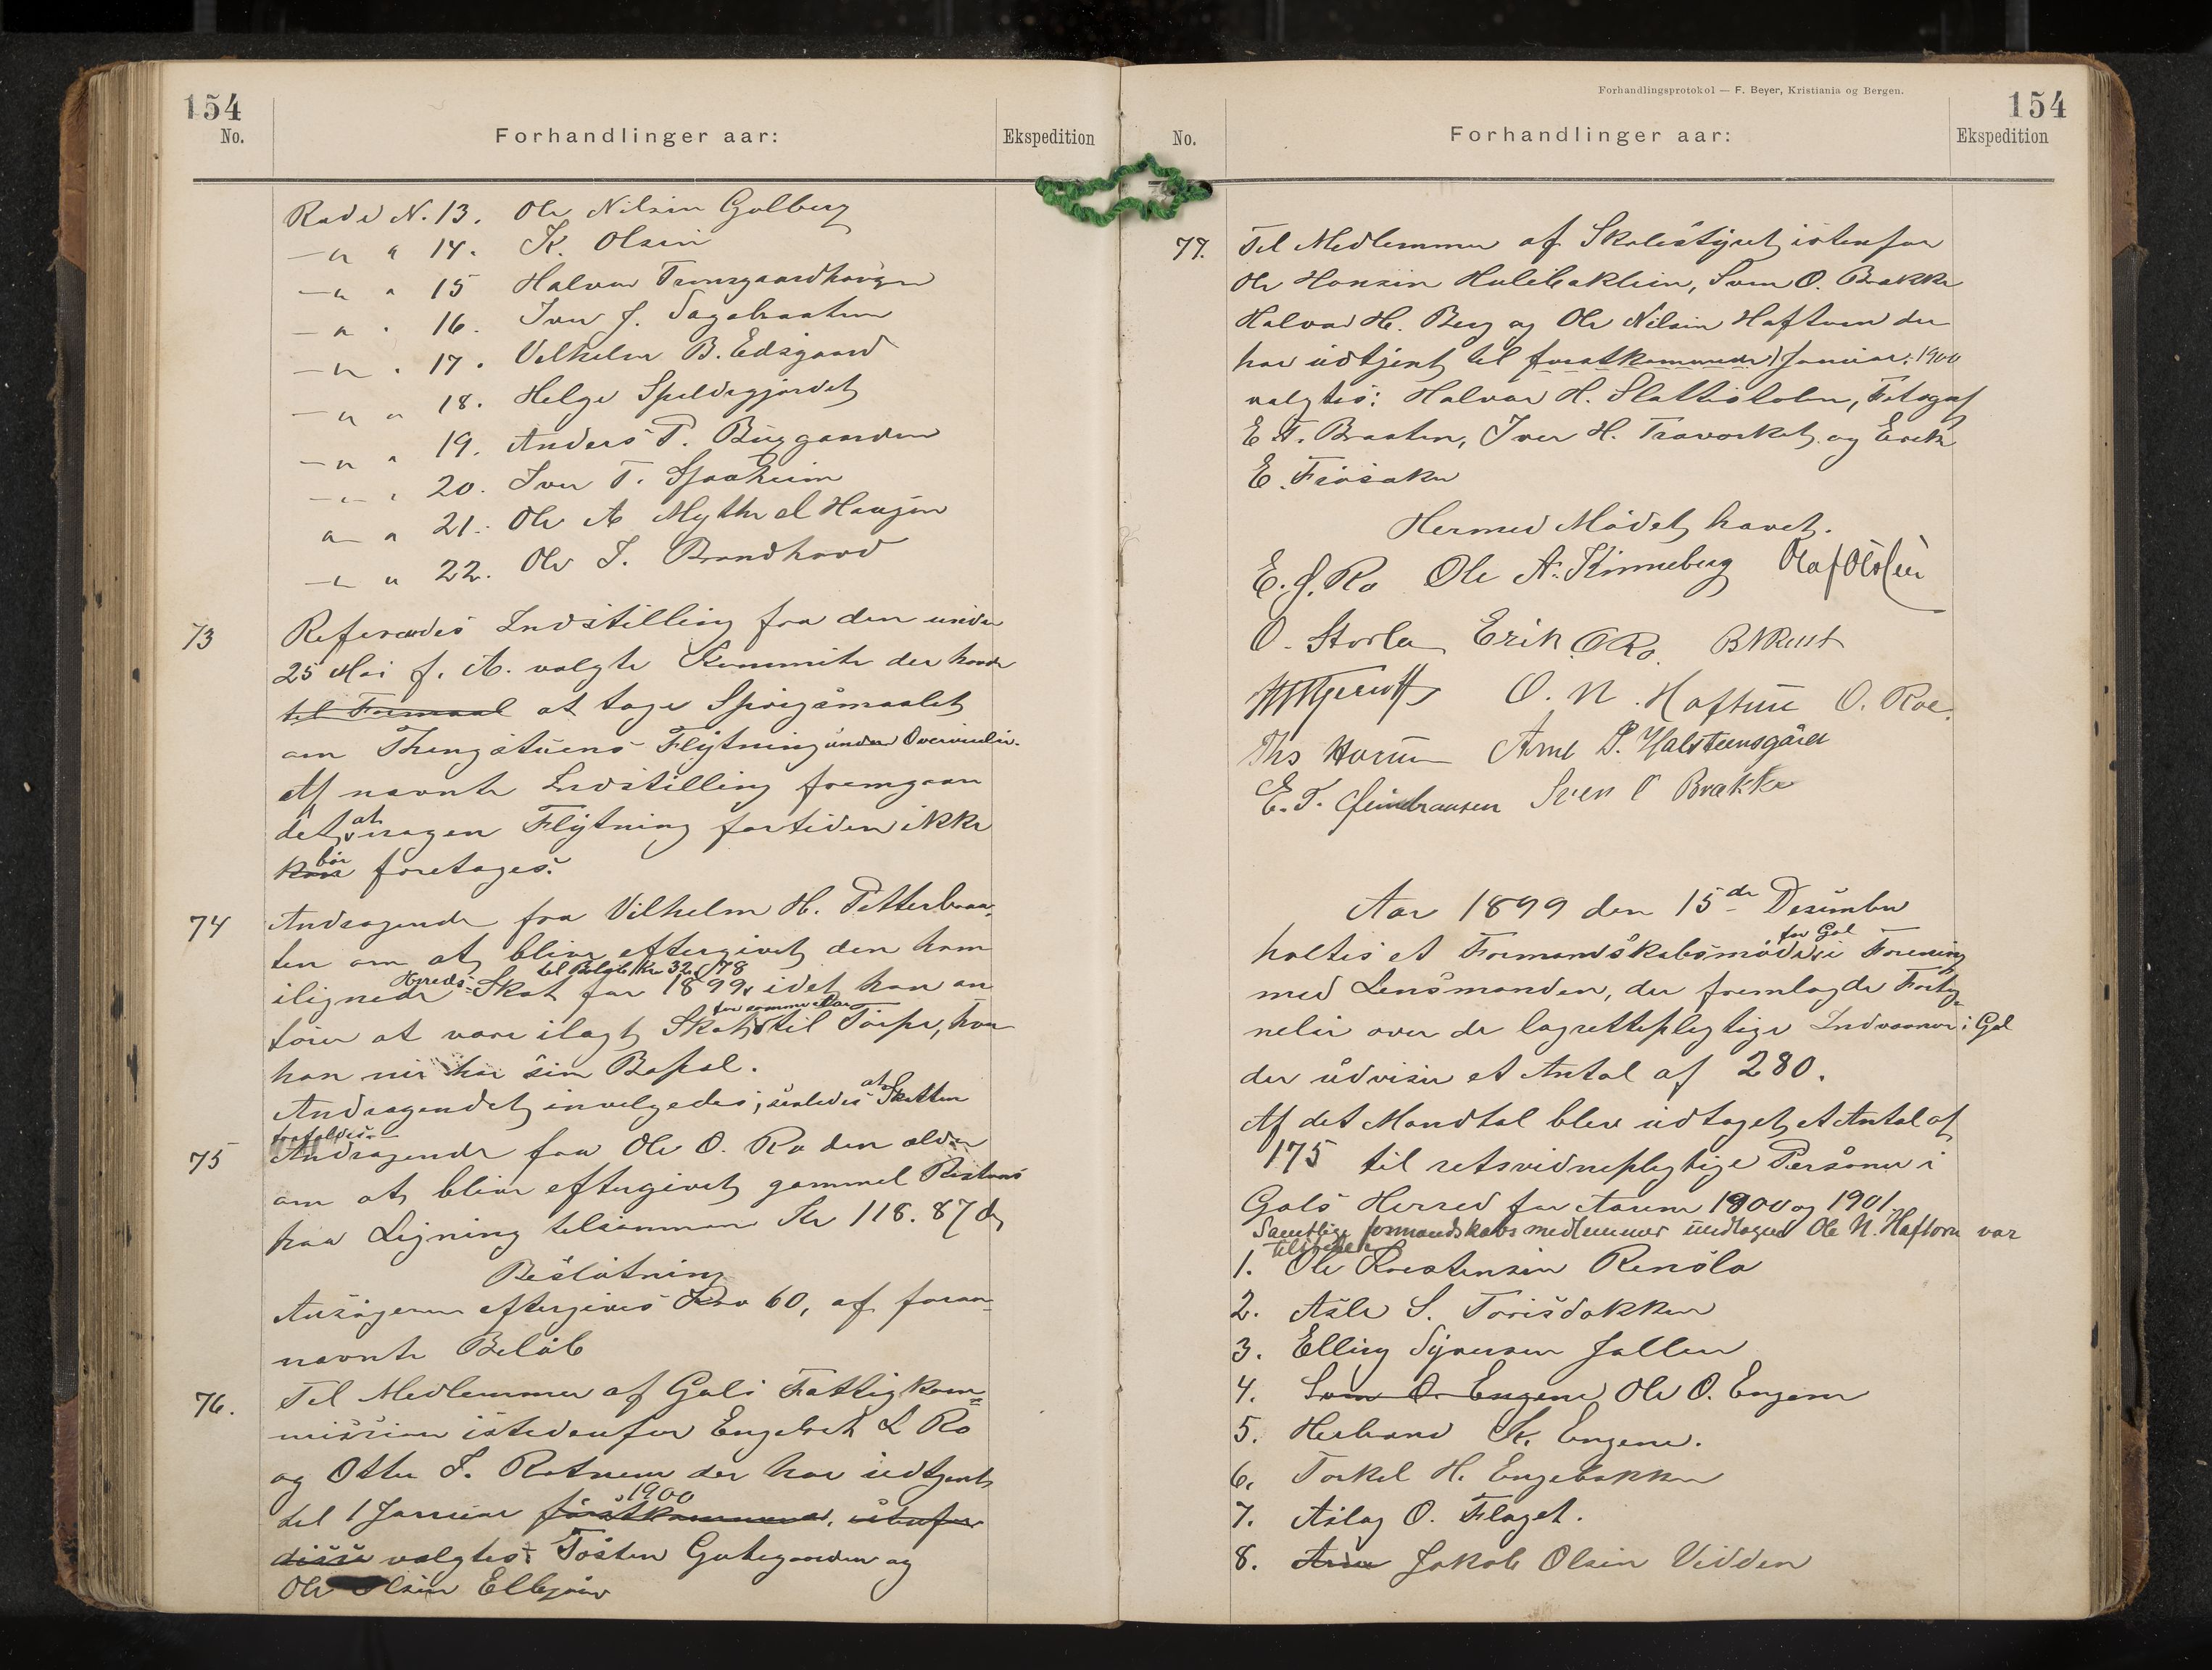 154
No.
Forhandlinger aar:
Ekspedition
Rode N. 13. Ole Nilsen Golberg
— " " 14. K. Olsen
— " " 15 Halvor
— " " 16. Iver J. Sagabraaten
— " " 17. Vilhelm B. Eidsgaard
— " " 18. Helge Speldegjordet
— " " 19. Anders T. Buggaarden
— " " 20. Iver T. Sjaaheim
" " 21. Ole A Mythe el Haugen
— " " 22. Ole I. Brandhovd
73
Refereredes Indstilling fra den under
25 Mai f. A. valgte Kommite der havde
til Formaal at tage Spørgsmaalet
om Thingstuens Flytning under Overveielse.
Af nævnte Indstilling fremgaar
det, at nogen Flytning fortiden ikke
kan bør foretages.
74
Andragende fra Vilhelm H. Petterbraa-
ten om at blive eftergivet den ham
til Beløb Kr 32.78
ilignede Herreds-Skat for 1899, idet han an
for samme Aar
fører at være ilagt Skat til Torpe, hvor
han nu har sin Bopæl.
Andragendet innvilgedes, saaledes at Skatten
frafaldes.
75
Andragende fra Ole O. Ro den ældre
om at blive eftergivet gammel Restans
paa Ligning tilsammen Kr 118.87
Beslutning
Ansøgeren eftergives Kro 60, af foran-
nævnte Beløb
76.
Til Medlemmer af Gols Fattigkom=
mission istedenfor Engebret L Ro
og Otter I. Rotneim der har udtjent
1900
til 1 Januar førstkommende, istenfor
disse valgtes: Tosten Golegarden og
Ole Olsen Ellegaar
Forhandlingsprotokol — F. Beyer, Kristiania og Bergen.
154
No.
Forhandlinger aar:
Ekspedition
77.
Til Medlemmer af Skolestyret istenfor
Ole Hansen Hulebaklien, Sven O. Brakke
Halvor H. Berg og Ole Nilsen Haftorn der
har udtjent til førstkommende 1 Januar 1900
valgtes: Halvor H. Slattestolen, Fotograf
E. T. Braaten, Iver H. Travoket og Erik
E. Frøsaker
Hermed Mødet hævet.
E. J. Ro Ole A. Kinneberg Olaf Olsen
O. Storla Erik O Ro. B N Rust
O. N. Haftorn O. Roe.
Ths Horum Arne P. Halsteensgård
E. T. Sven O Brakke
Aar 1899 den 15de Desember
for Gol
holtes et Formandskabsmøde i Forening
med Lensmanden, der fremlagde Forteg-
nelse over de lagrettepligtige Indvaanere i Gol
der udviser et Antal af 280.
Af det Mandtal blev udtaget et Antal af
175 til retsvidnepligtige Personer i
Gols Herred for Aarene 1900 og 1901.
Samtlige formandskabsmedlemmer undtagen Ole N. Haftorn var
tilstede.
1. Ole Krestensen Rensla
2. Asle S. Torisdokken
3. Elling Syversen Jallen
4. Sven O. Engene Ole O. Engene
5. Herbrand K. Engene.
6. Torkel H. Engebakken
7. Aslag O. Flaget.
8. Arne Jakob Olsen Vidden